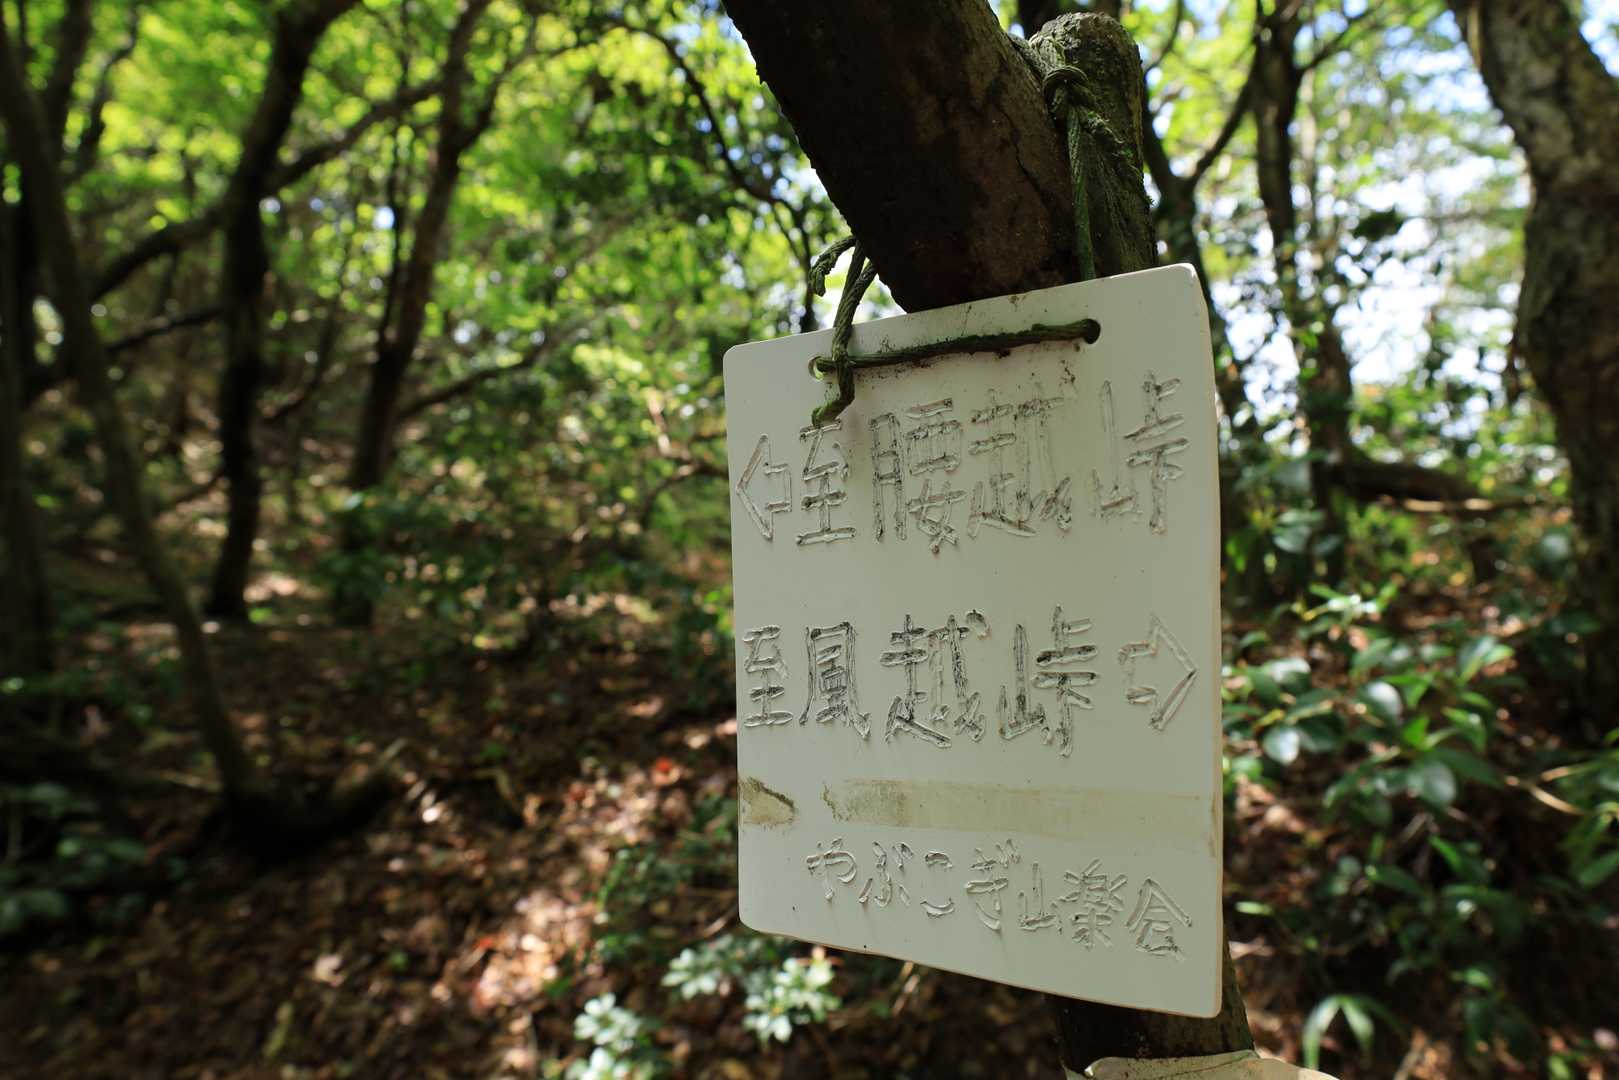 ⇦至腰越峠
至鳳越峠⇨
やぶこぎ山楽会